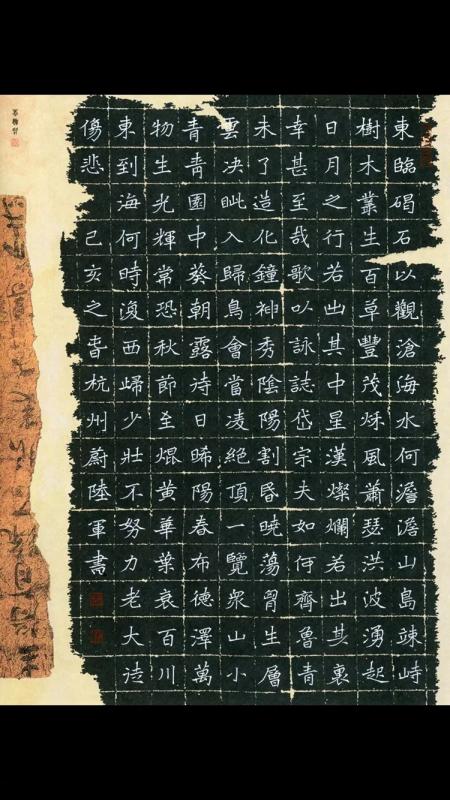 東臨碣石以觀滄海水何澹澹山島竦峙
樹木叢生百草豐茂秌風蕭瑟洪波湧起
日月之行若出其中星漢燦爛若出其裏
幸甚至哉歌以詠誌岱宗夫如何齊魯青
未了造化鐘神秀陰陽割昏曉蕩胷生層
雲決眦入歸鳥會當凌絕頂一覽衆山小
青青園中葵朝露待日晞陽春布德澤萬
物生光輝常恐秋節至焜黃華葉衰百川
東到海何時復西歸少壯不努力老大徒
傷悲 己亥之春杭州蔚陸軍書